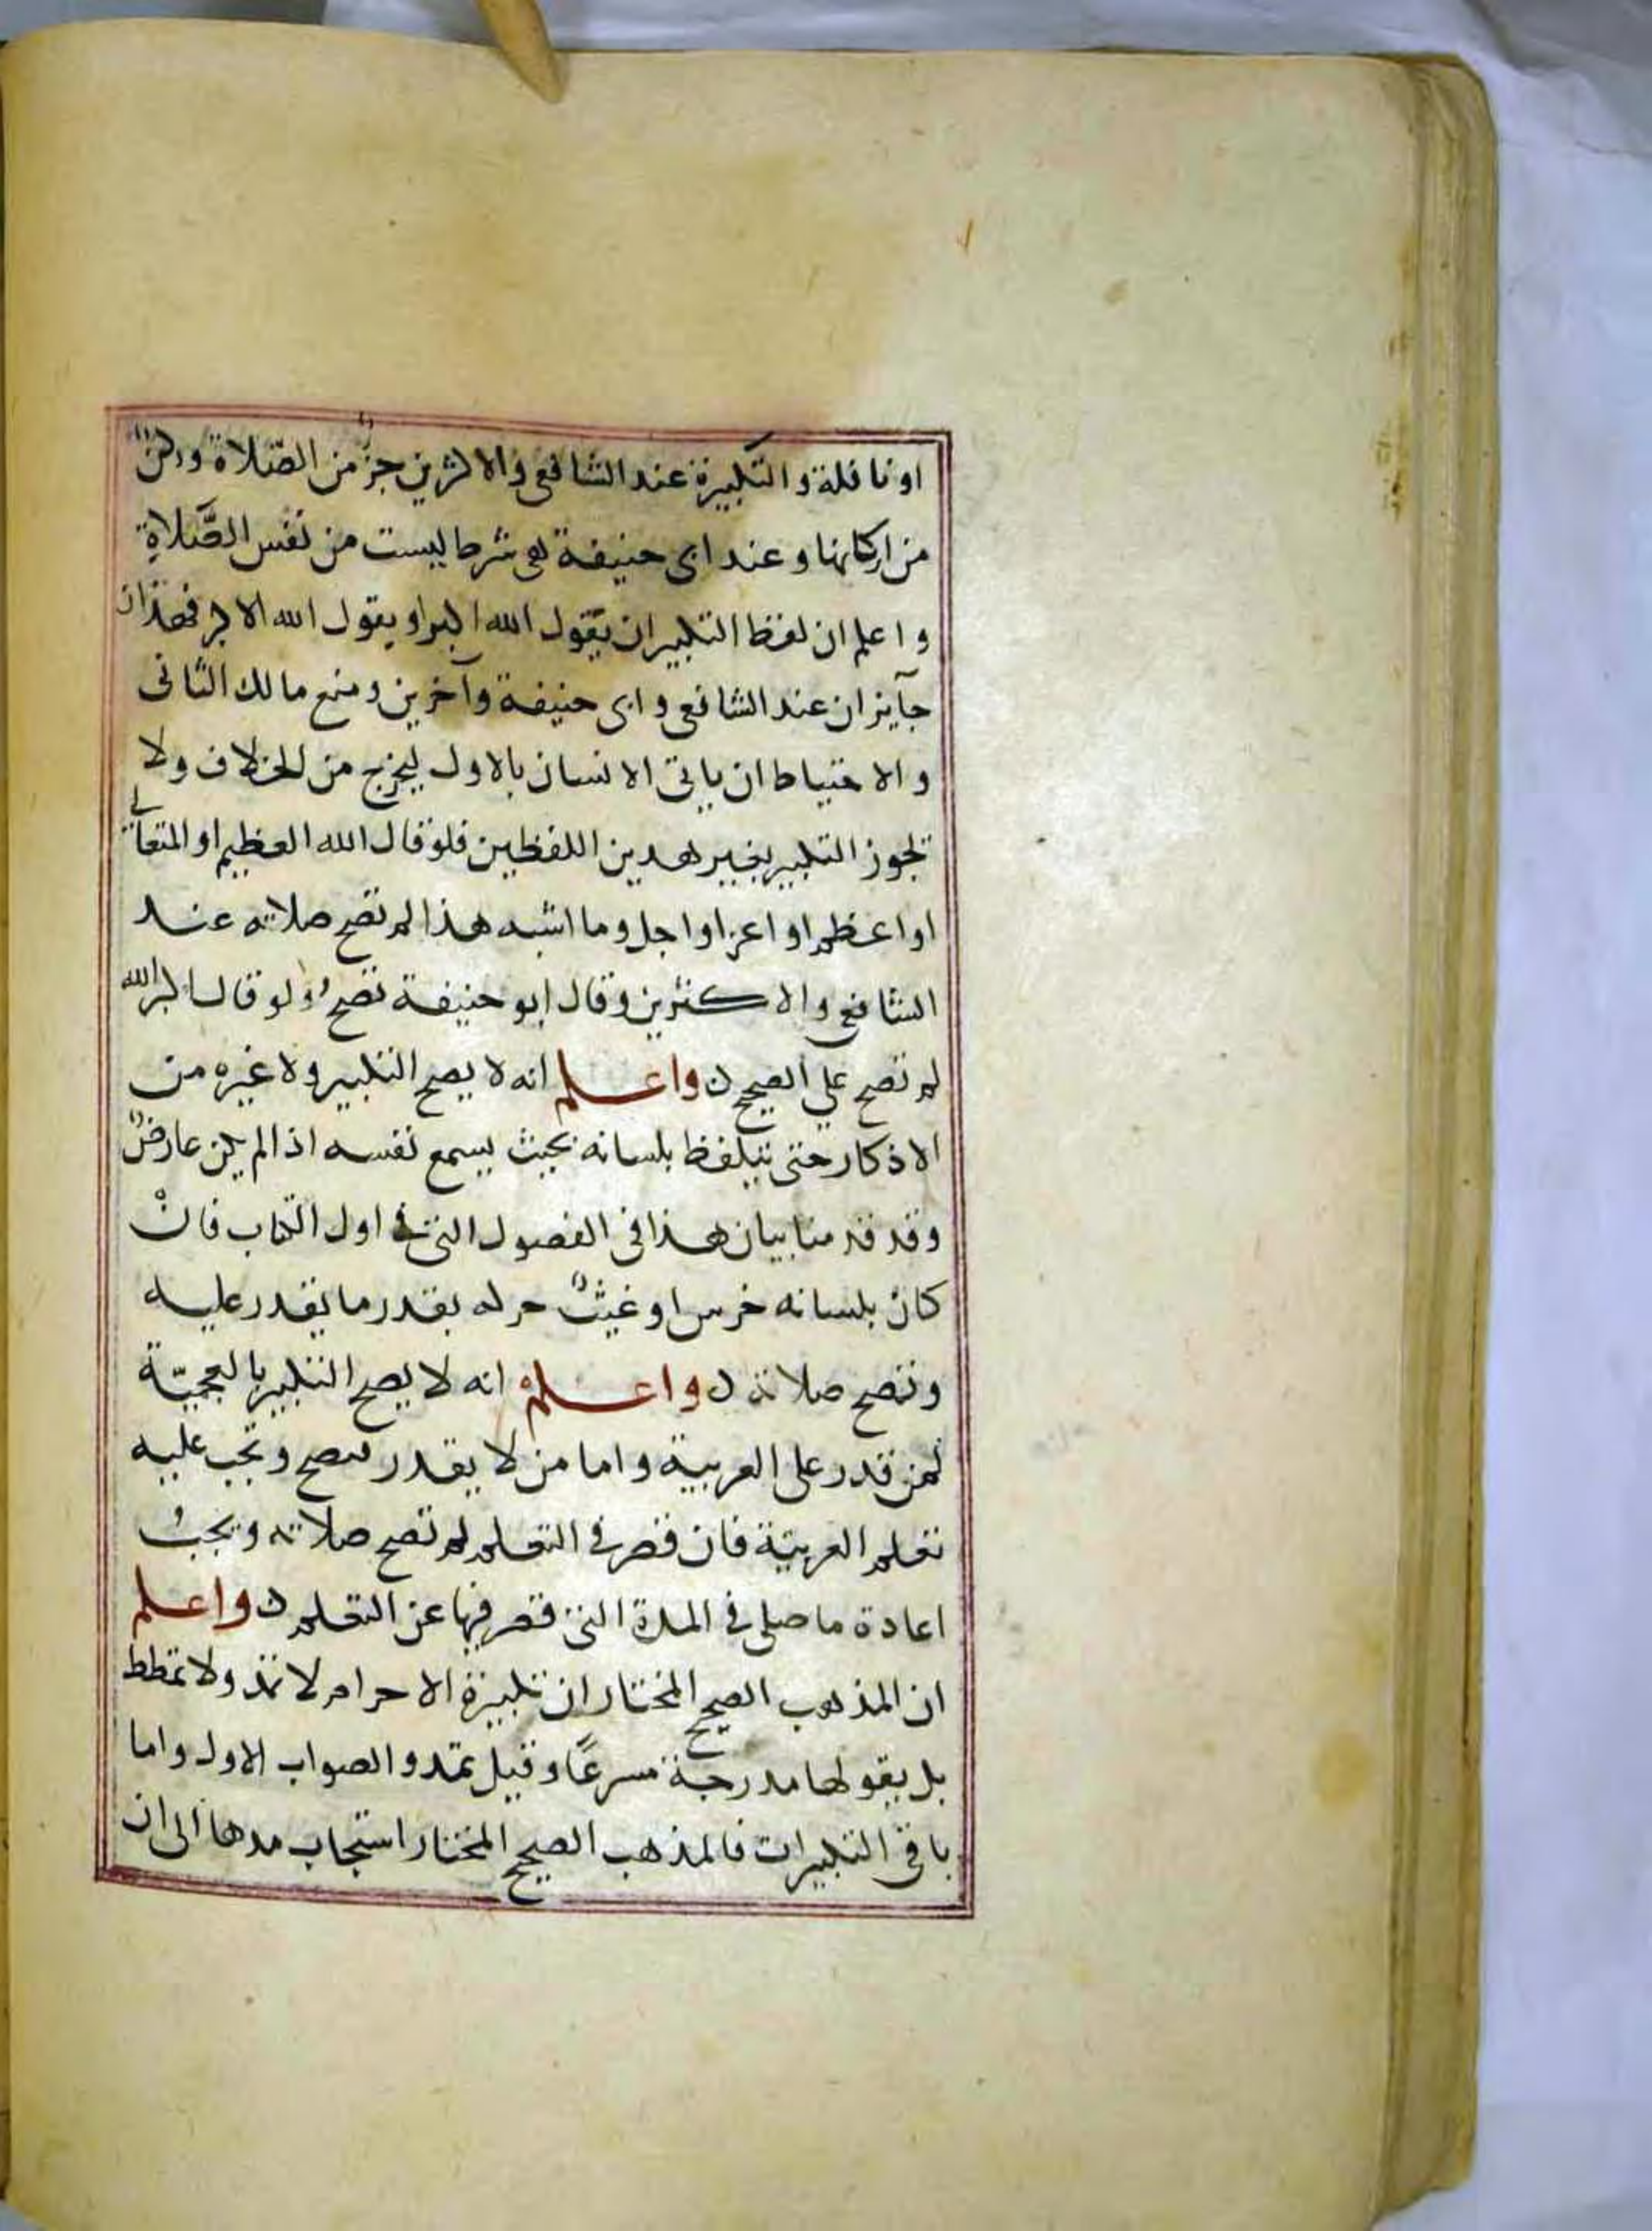 او نافلة والتكبيرة عند الشافعي والاكثرين جزؤ من الصلاة وركنٌ
من اركانها وعند ابى حنيفة هي شرط ليست من نفس الصَّلاةِ
واعلم ان لفظ التكبير ان يقول الله اكبر او يقول الله الاكبر فهذان
جآيزان عند الشافعي وابى حنيفة وآخرين ومنع مالك الثانى
والاحتياط ان ياتي الانسان بالاول ليخرج من الخلاف ولا
تجوز التكبير بغير هذين اللفظين فلو قال الله العظيم او المتعالي
او اعظم او اعز او اجل وما اشبه هذا لم تصح صلاته عند
الشافعي والاكثرين وقال ابو حنيفة تصح ولو قال اكبر الله
لم تصح علي الصحيح ن واعلم انه لا يصح التكبير ولا غيره من
الاذكار حتى يتلفظ بلسانه بحيث يسمع نفسه اذا لم يكن عارضٌ
وقد قدمنا بيان هذا في الفصول التي في اول الكتاب فانْ
كان بلسانه خرس او غيثٌ حركه بقدر ما يقدر عليه
وتصح صلاته ن واعلم انه لا يصح التكبير بالعجميّة
لمن قدر على العربية واما من لا يقدر فيصح وتجب عليه
تعلم العربيّة فان قصر في التعلم لم تصح صلاته ويجبُ
اعادة ما صلى في المدة التي قصر فيها عن التعلم ن واعلم
ان المذهب الصحيح المختار ان تكبيرة الاحرام لا تمد ولا تمطط
بل يقولها مدرجة مسرعًا وقيل تمد والصواب الاول واما
باقي التكبيرات فالمذهب الصحيح المختار استحباب مدها الى ان